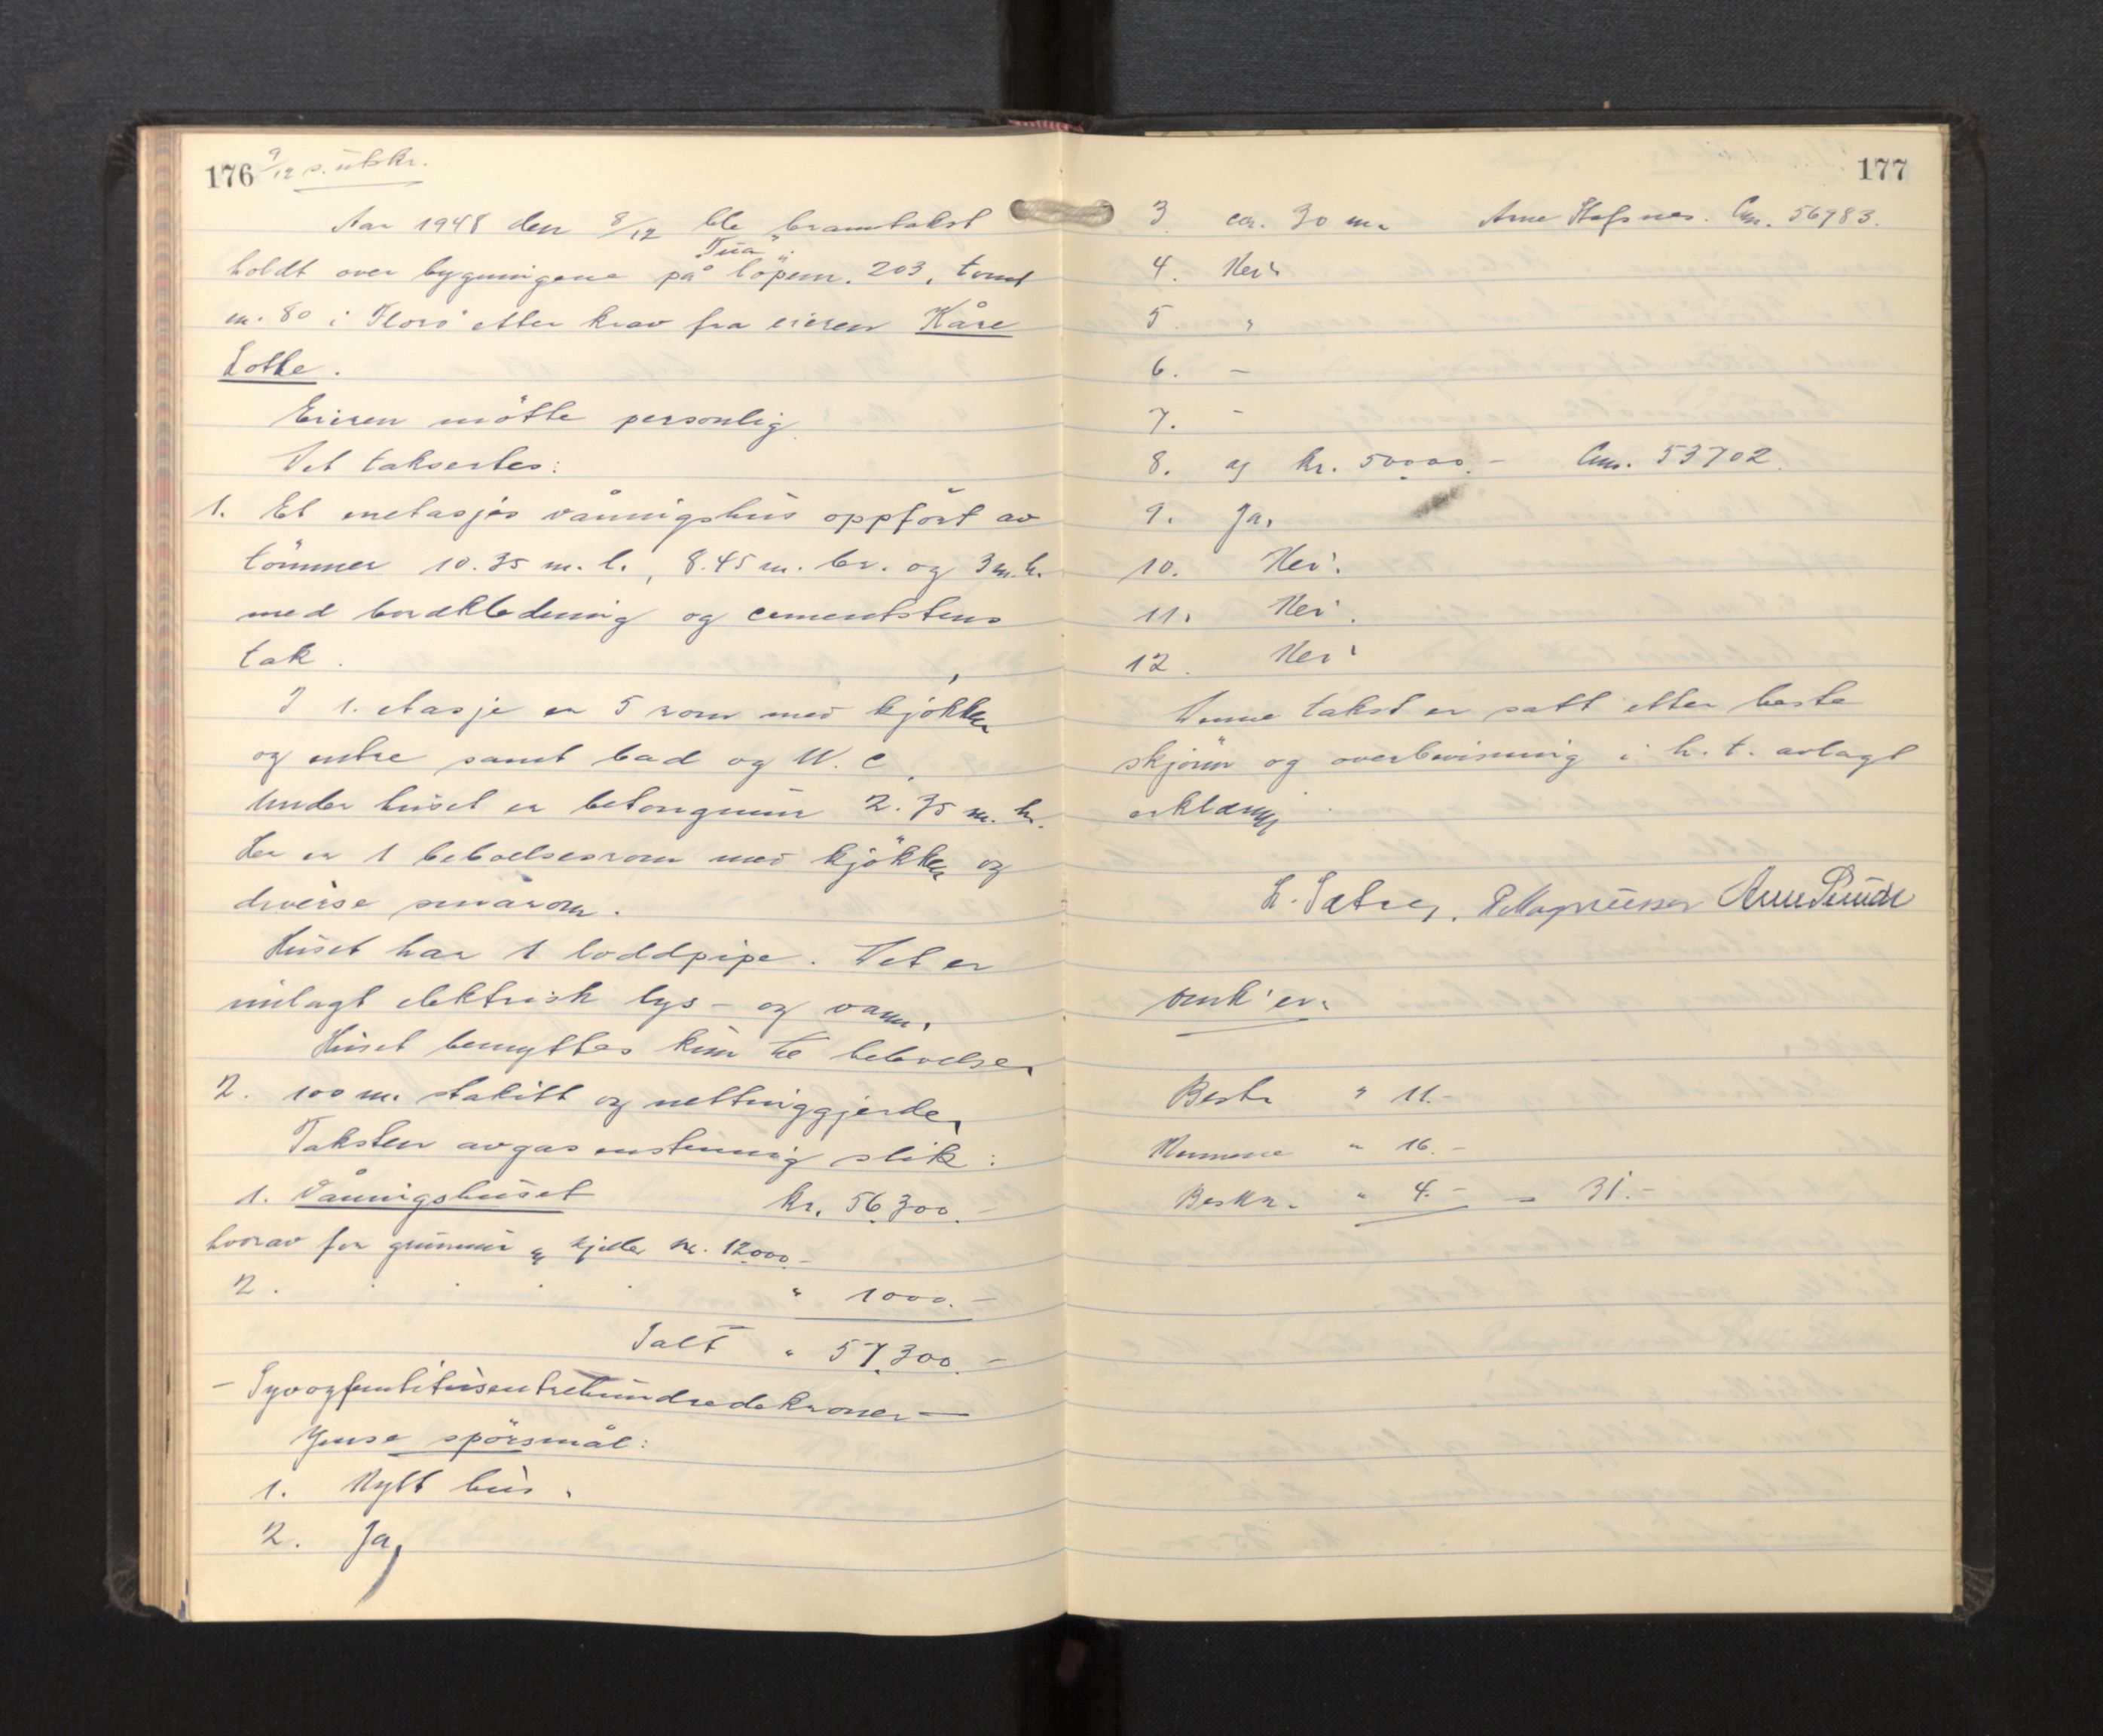 176 9/12 s. utskr.
Aar 1948 den 8/12 ble branntakst
holdt over bygningene på "Tua": löpenr. 203, tomt
nr. 80 i Florö etter krav fra eieren Kåre
Lothe.
Eieren mötte personlig.
Det taksertes:
1. Et enetasjes våningshus oppfört av
tömmer 10.35 m. l., 8.45 m. br. og 3 m. h.
med bordkledning og cementstens
tak.
I 1. etasje er 5 rom med kjökken
og entre samt bad og W.C.
Under huset er betongmur 2.35 m. h.
Her er 1 beboelsesrom med kjökken og
diverse smårom.
Huset har 1 loddpipe. Det er
innlagt elektrisk lys- og vann.
Huset benyttes kun til beboelse.
2. 100 m. stakitt og nettinggjerde.
Taksten avgas enstemmig slik:
1. Våningshuset kr. 56.300.-
hvorav for grunnmur og kjeller kr. 12.000.-
2. . . . . " 1000.-
Ialt " 57.300.-
- Syvogfemtitusentrehundredekroner -
Ymse spörsmål:
1. Nytt hus.
2. Ja,
177
3. ca. 30 m. Arne Stafsnes. Anr. 56983.
4. Nei.
5. "
6. -
7. -
8. kr. 50000.- Anr. 53702.
9. Ja,
10. Nei.
11. Nei.
12. Nei.
Denne takst er satt etter beste
skjönn og overbevisning i h. t. avlagt
erklæring.
P. Magnussen Arne Sunde
Omk'er.
Best. " 11.-
Mennene " 16.-
Beskr. " 4.- = 31.-